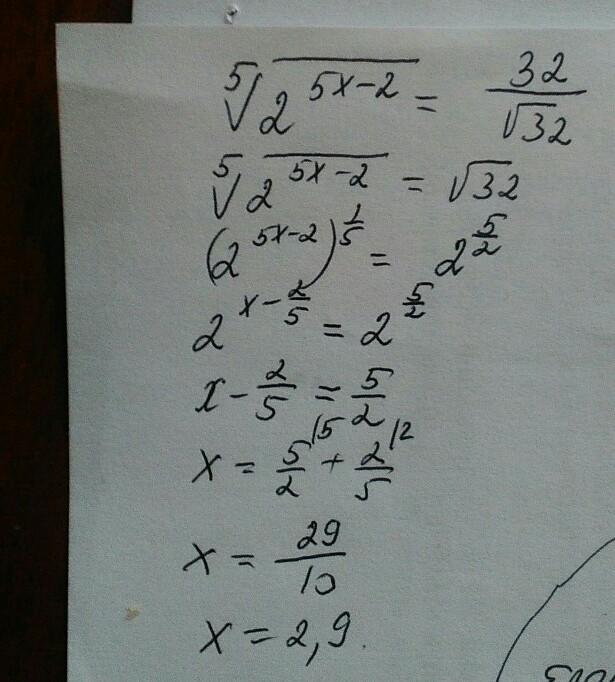 ⁵√2^(5x-2) = 32/√32
⁵√2^(5x-2) = √32
(2^(5x-2))^(1/5) = 2^(5/2)
2^(x-2/5) = 2^(5/2)
x - 2/5 = 5/2
x = 5/2 |5 + 2/5 |2
x = 29/10
x = 2,9.